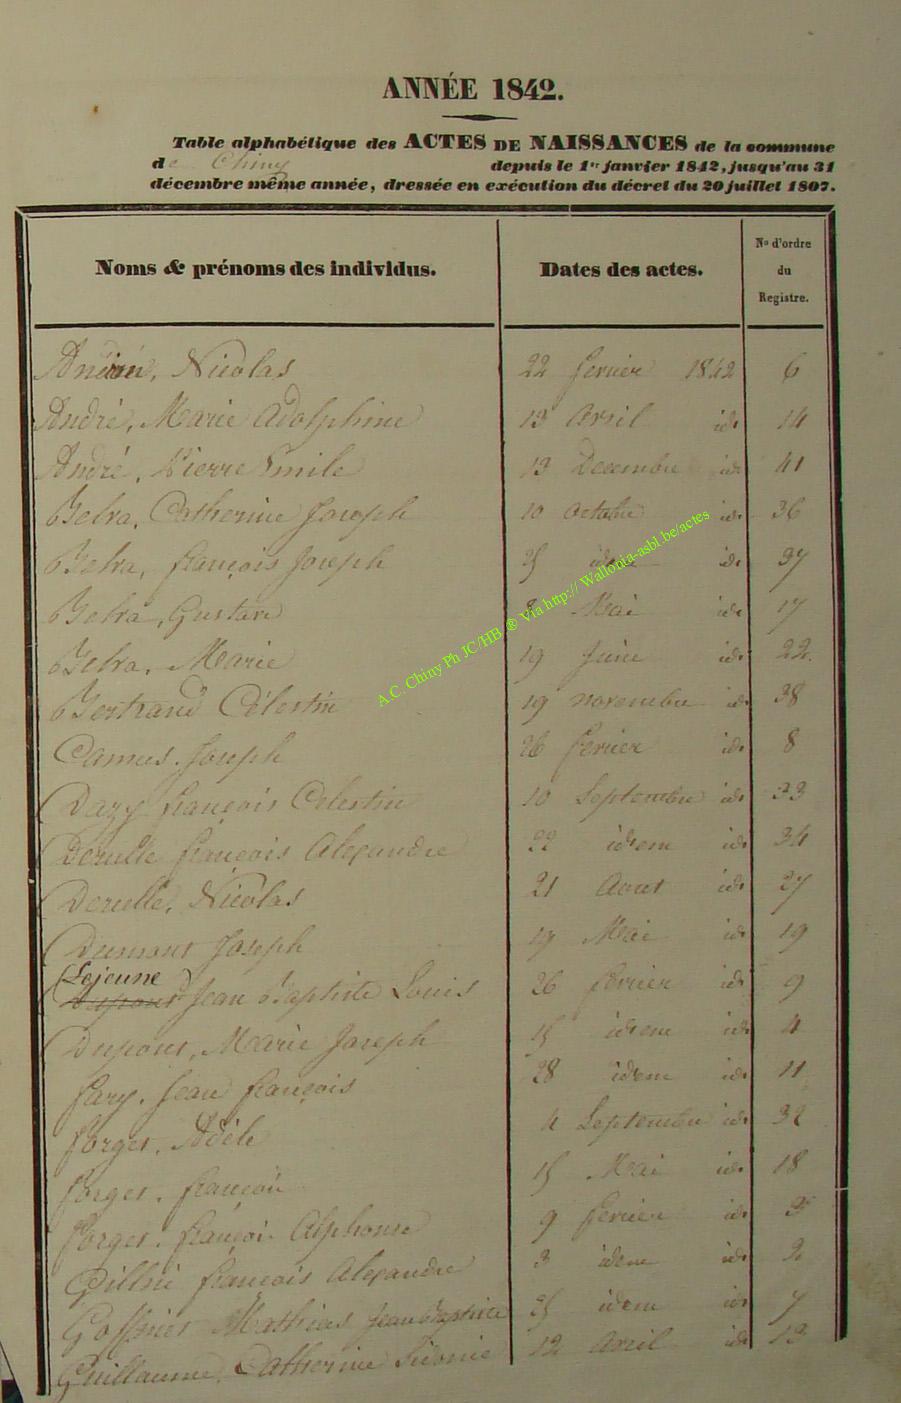 ANNÉE 1842.
Table alphabétique des ACTES DE NAISSANCES de la commune
de Chiny depuis le 1er janvier 1842, jusqu'au 31
décembre même année, dressée en exécution du décret du 20 juillet 1807.
Noms & prénoms des individus. Dates des actes. No d'ordre du Registre.
Nicolas 22 fevrier 1842 6
André, Marie Adolphine 13 Avril id. 14
André, Pierre Emile 13 Decembre id. 41
Gelva, Catherine Joseph 10 octobre id. 36
Gelva, françois Joseph 25 idem id. 37
Gelva, Gustave Mai id. 17
Gelva, Marie 19 Juin id. 22.
Bertrand Célestin 19 novembre id. 38
Camus, Joseph 26 fevrier id. 8
Dazy françois Celestin 10 Septembre id. 33
Derulle françois Alexandre 22 idem id. 34
Derulle, Nicolas 21 Aout id. 27
Dumont Joseph 17 Mai id. 19
(Lejeune)
Dupont Jean Baptiste Louis 26 fevrier id. 9
Dupont, Marie Joseph 15 idem id. 4
fary, Jean françois 28 idem id. 11
forget, Adèle 4 Septembre id. 32
forget, françois 15 Mai id. 18
forget, françois Alphonse 9 fevrier id. 3
françois Alexandre 3 idem id. 2
Goffinet Mathias Jean Baptiste 25 idem id. 7
Guillaume, Catherine Sidonie 12 Avril id. 13
A.C. Chiny Ph JC/HB ® Via http:// Wallonia-asbl.be/actes